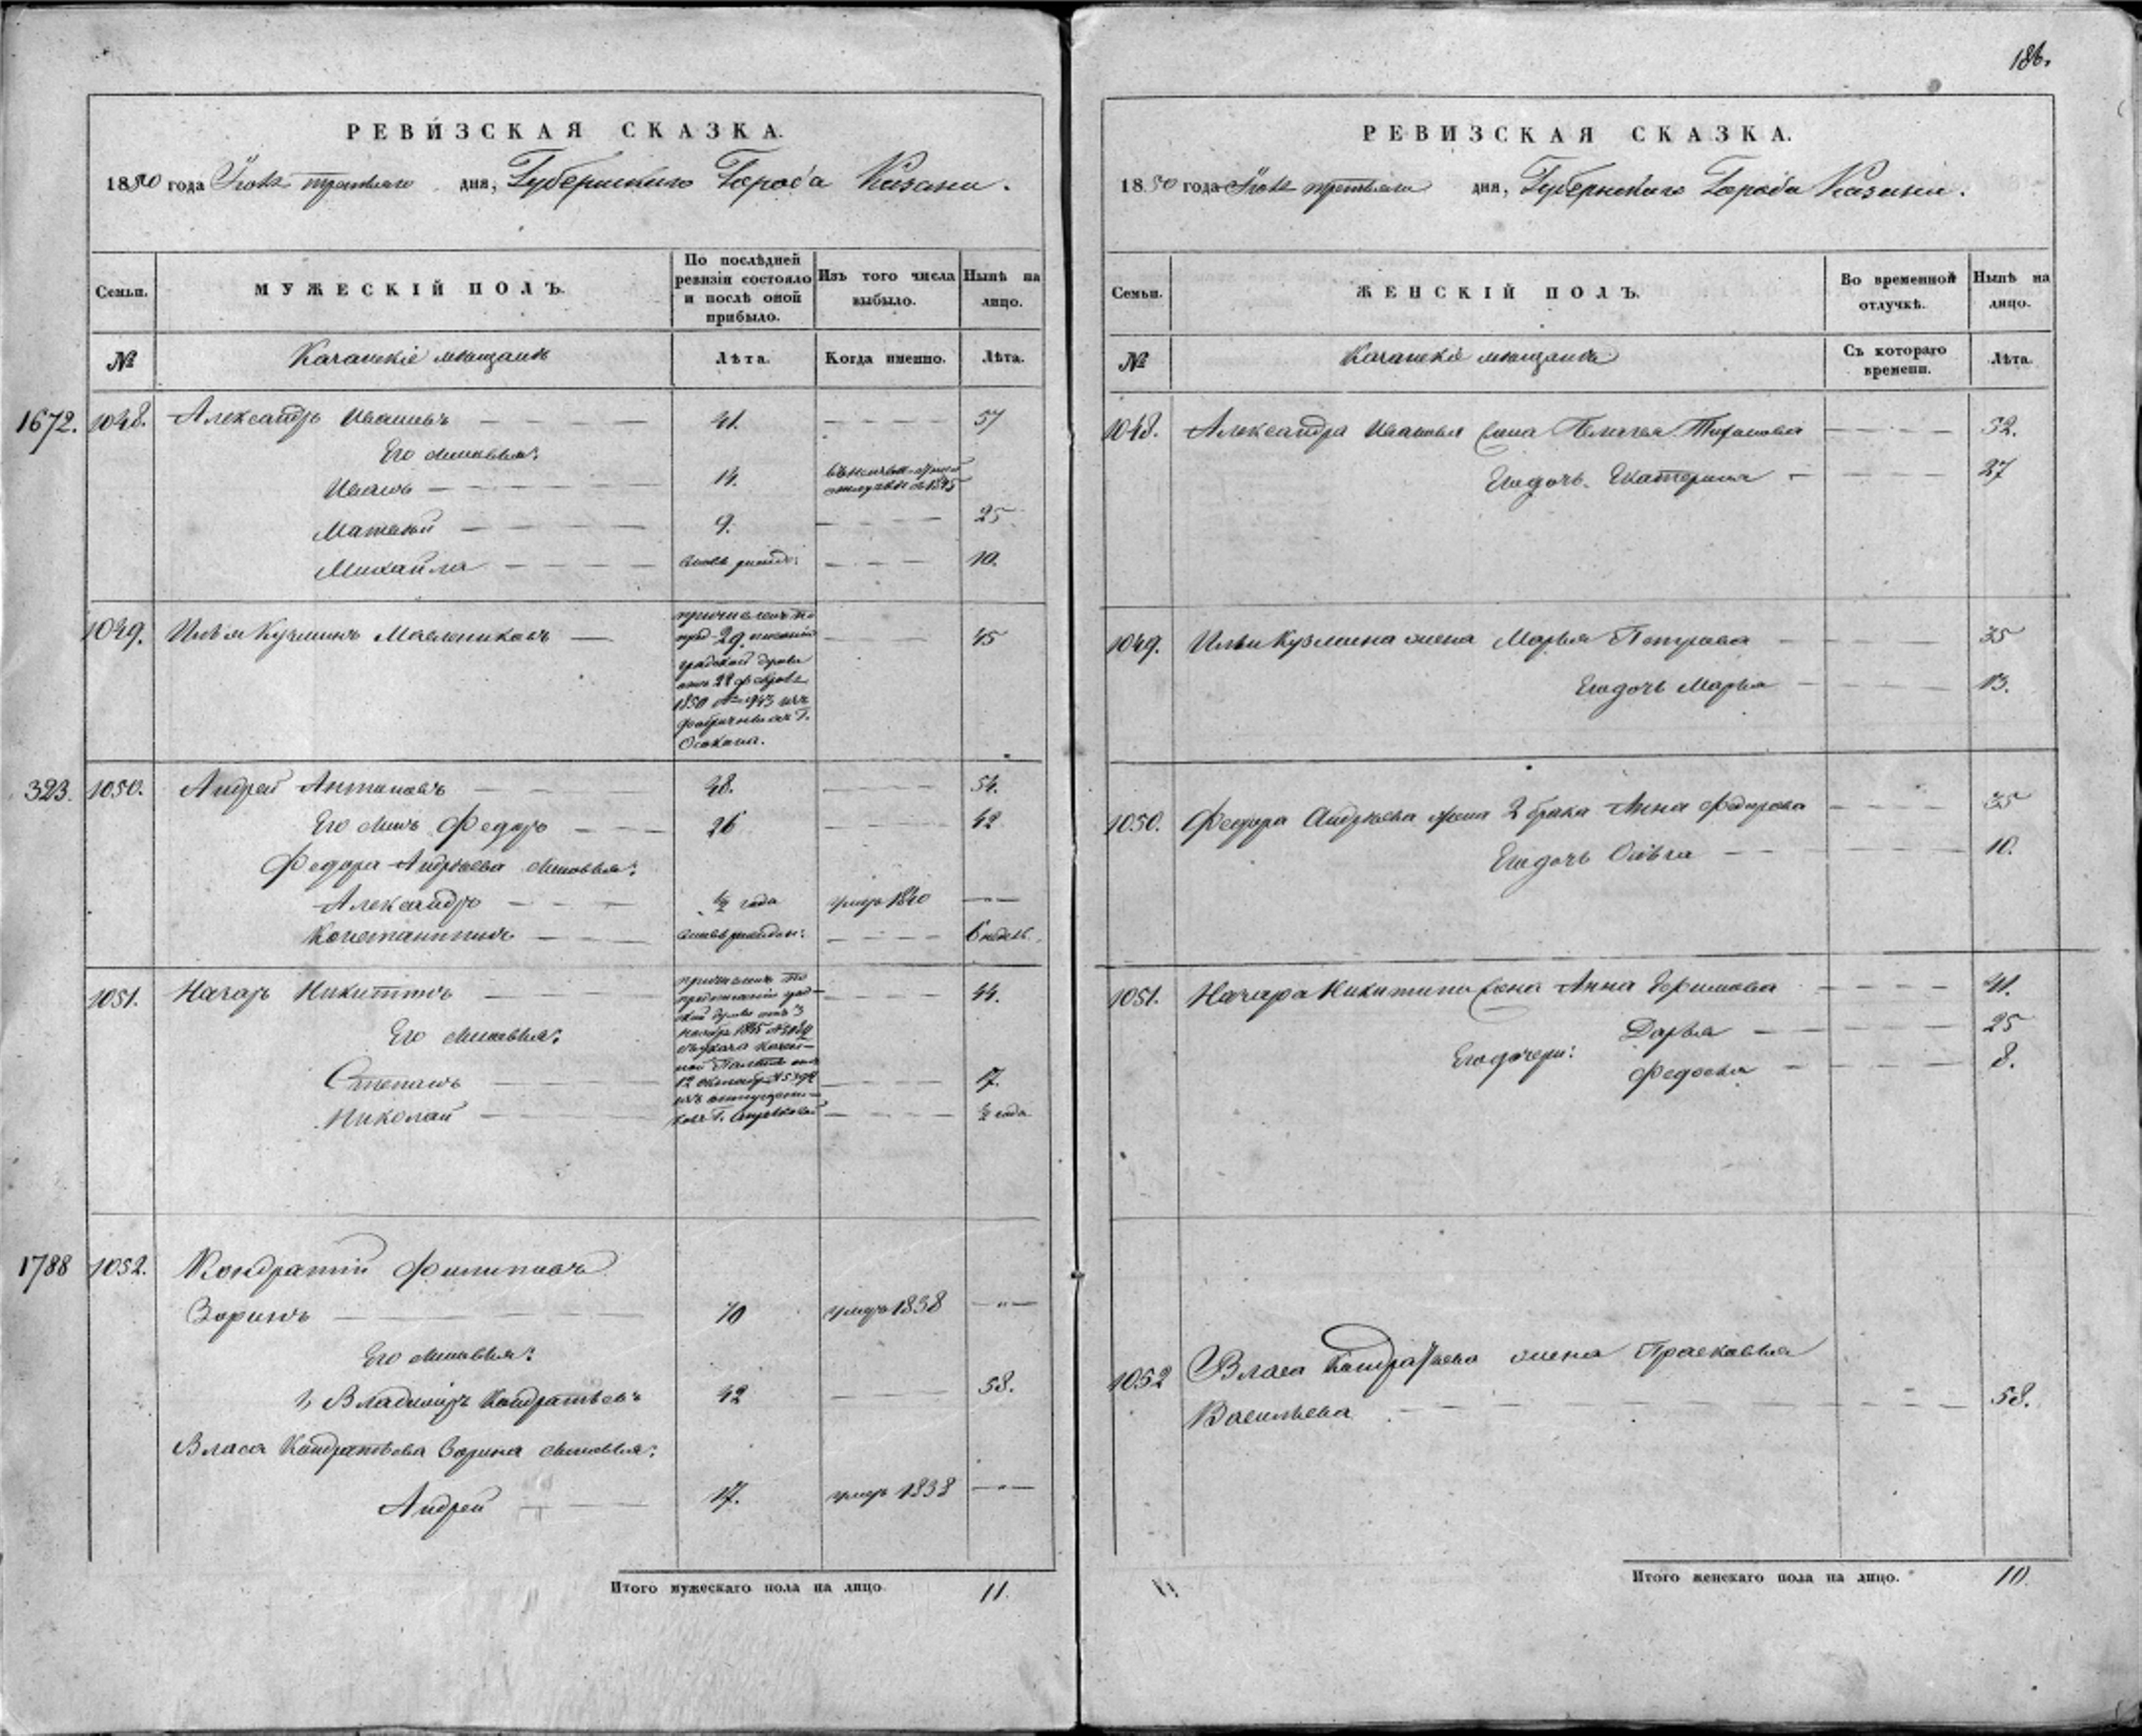 186.
РЕВИЗСКАЯ СКАЗКА.
1850 года Іюля третьяго дня, Губернскаго Города Казани.
Семьи.
МУЖЕСКІЙ ПОЛЪ.
По послѣдней ревизіи состояло и послѣ оной прибыло.
Изъ того числа выбыло.
Нынѣ на лицо.
№
Казанскіе мѣщане
Лѣта.
Когда именно.
Лѣта.
1672. 1048. Александръ Ивановъ 41. 57
Его сыновья:
Иванъ 14. отлучкѣ съ 1845
Матвѣй 9. 25
Михайла вновь рожд: 10.
1049. Илья Кузминъ Масленниковъ 45
причисленъ по
пред. 29.
градской думы
отъ 28 февраля
1850 № 943 изъ
фабричныхъ Г.
Осокина.
323. 1050. Андрей Антиповъ 48. 54.
Его сынъ Федоръ 26 42
Федора Андреева сыновья:
Александръ ½ года умеръ 1840 —"—
Константинъ вновь рожден: 6 недѣль.
1051. Назаръ Никитинъ 44.
причисленъ по
предписанію град-
ской думы отъ 3
ноября 1845
указа Казен-
ной Палаты отъ
12 октября
изъ отпущен-
Его сыновья:
Степанъ 17.
Николай ½ года
1788 1052. Кондратій Филиповъ
Зоринъ 70 умеръ 1838 —"—
Его сыновья:
1, Владимиръ Кондратьевъ 42 58.
Власа Кондратьева Зорина сыновья:
Андрей 17. умеръ 1838 —"—
Итого мужескаго пола на лицо. 11.
РЕВИЗСКАЯ СКАЗКА.
1850 года Іюля третьяго дня, Губернскаго Города Казани.
Семьи.
ЖЕНСКІЙ ПОЛЪ.
Во временной отлучкѣ.
Нынѣ на лицо.
№
Казанскіе мѣщане
Съ котораго времени.
Лѣта.
1048. Александра Иванова жена Пелагея 52.
Его дочь Екатерина 27
1049. Ильи Кузмина жена Марья Петрова 35
Его дочь Марья 13.
1050. Федора Андреева жена 2 брака Анна Федорова 35
Его дочь Ольга 10.
1051. Назара Никитина жена Анна Ефимова 41.
Его дочери: Дарья 25
Федосья 8.
1052 Власа Кондратьева жена Прасковья
Васильева 58.
Итого женскаго пола на лицо. 10.